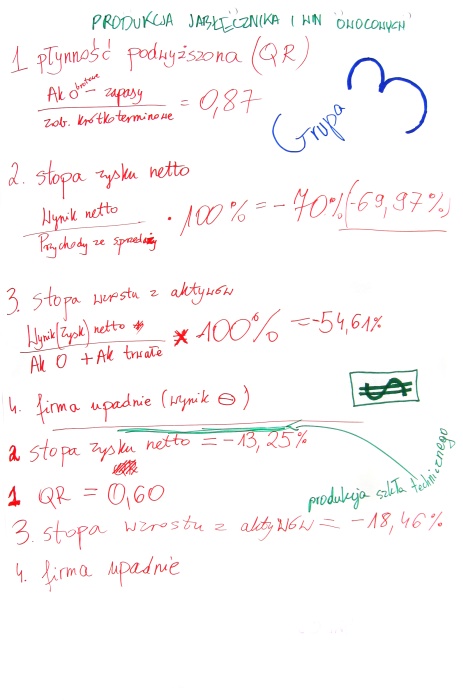 PRODUKCJA JABŁECZNIKA I WIN OWOCOWYCH
1 płynność podwyższona (QR)
Ak Obrotowe - zapasy
zob. krótkoterminowe
= 0,87
Grupa 3
2. stopa zysku netto
Wynik netto
Przychody ze sprzedaży
· 100% = - 70% (-69,97%)
3. stopa wzrostu z aktywów
Wynik (zysk) netto
Ak O + Ak trwałe
× 100% = -54,61%
$
4. firma upadnie (wynik ⊖)
2 stopa zysku netto = -13,25%
produkcja szkła technicznego
1 QR = 0,60
3. stopa wzrostu z aktywów = -18,46%
4. firma upadnie